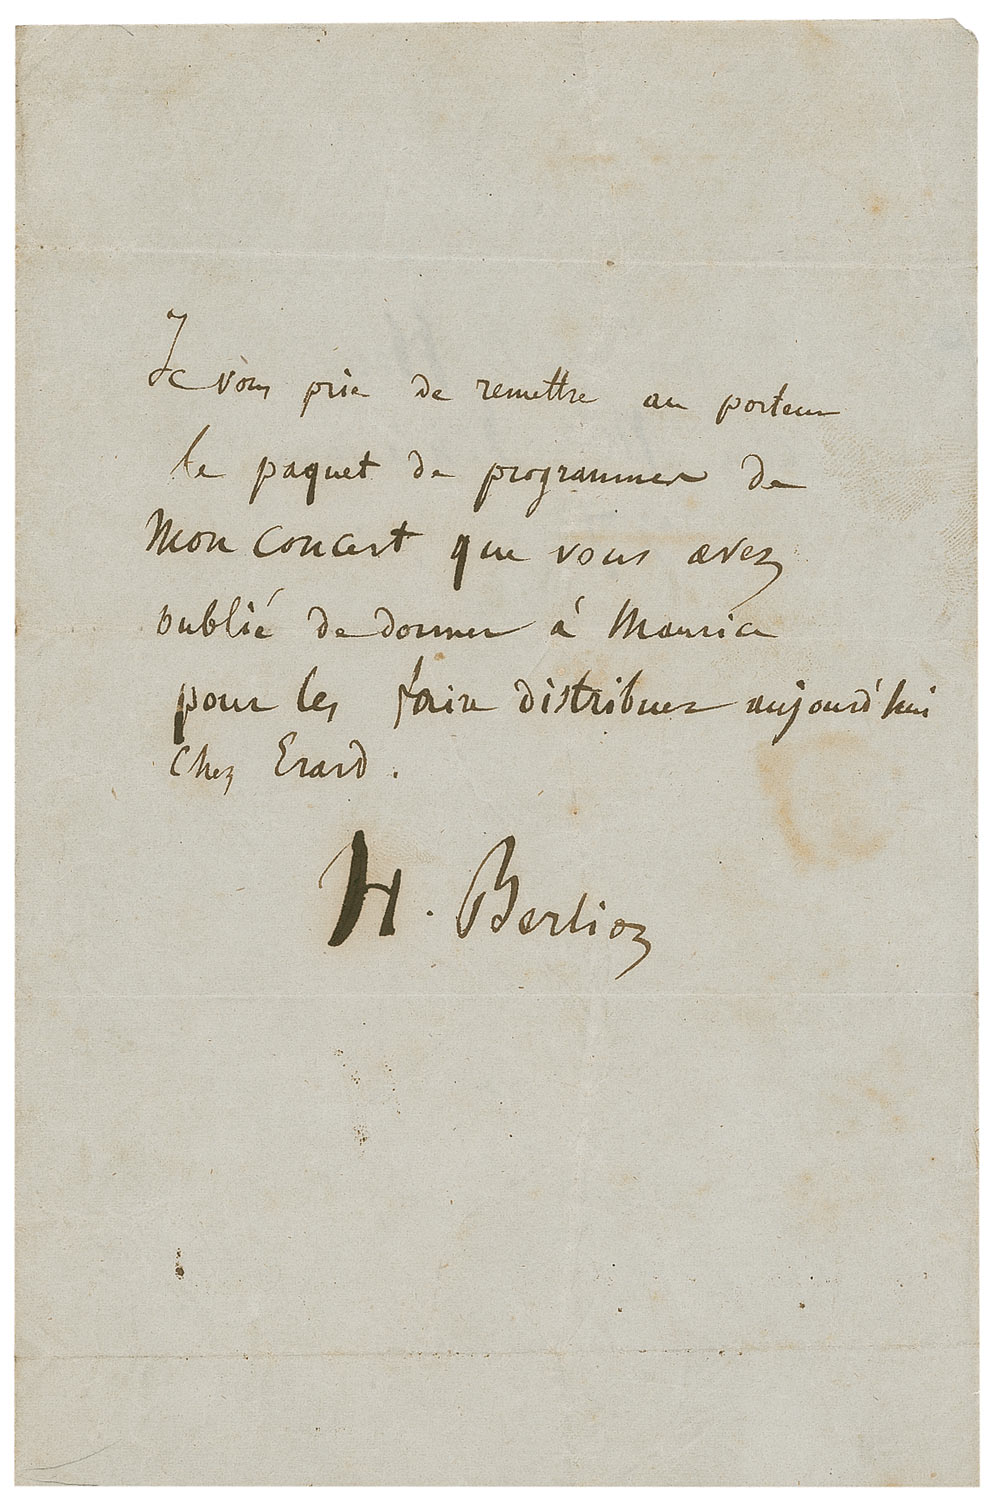 Je vous prie de remettre au porteur
le paquet de programmes de
mon concert que vous avez
oublié de donner à Maurice
pour les faire distribuer aujourd'hui
chez Erard.
H. Berlioz